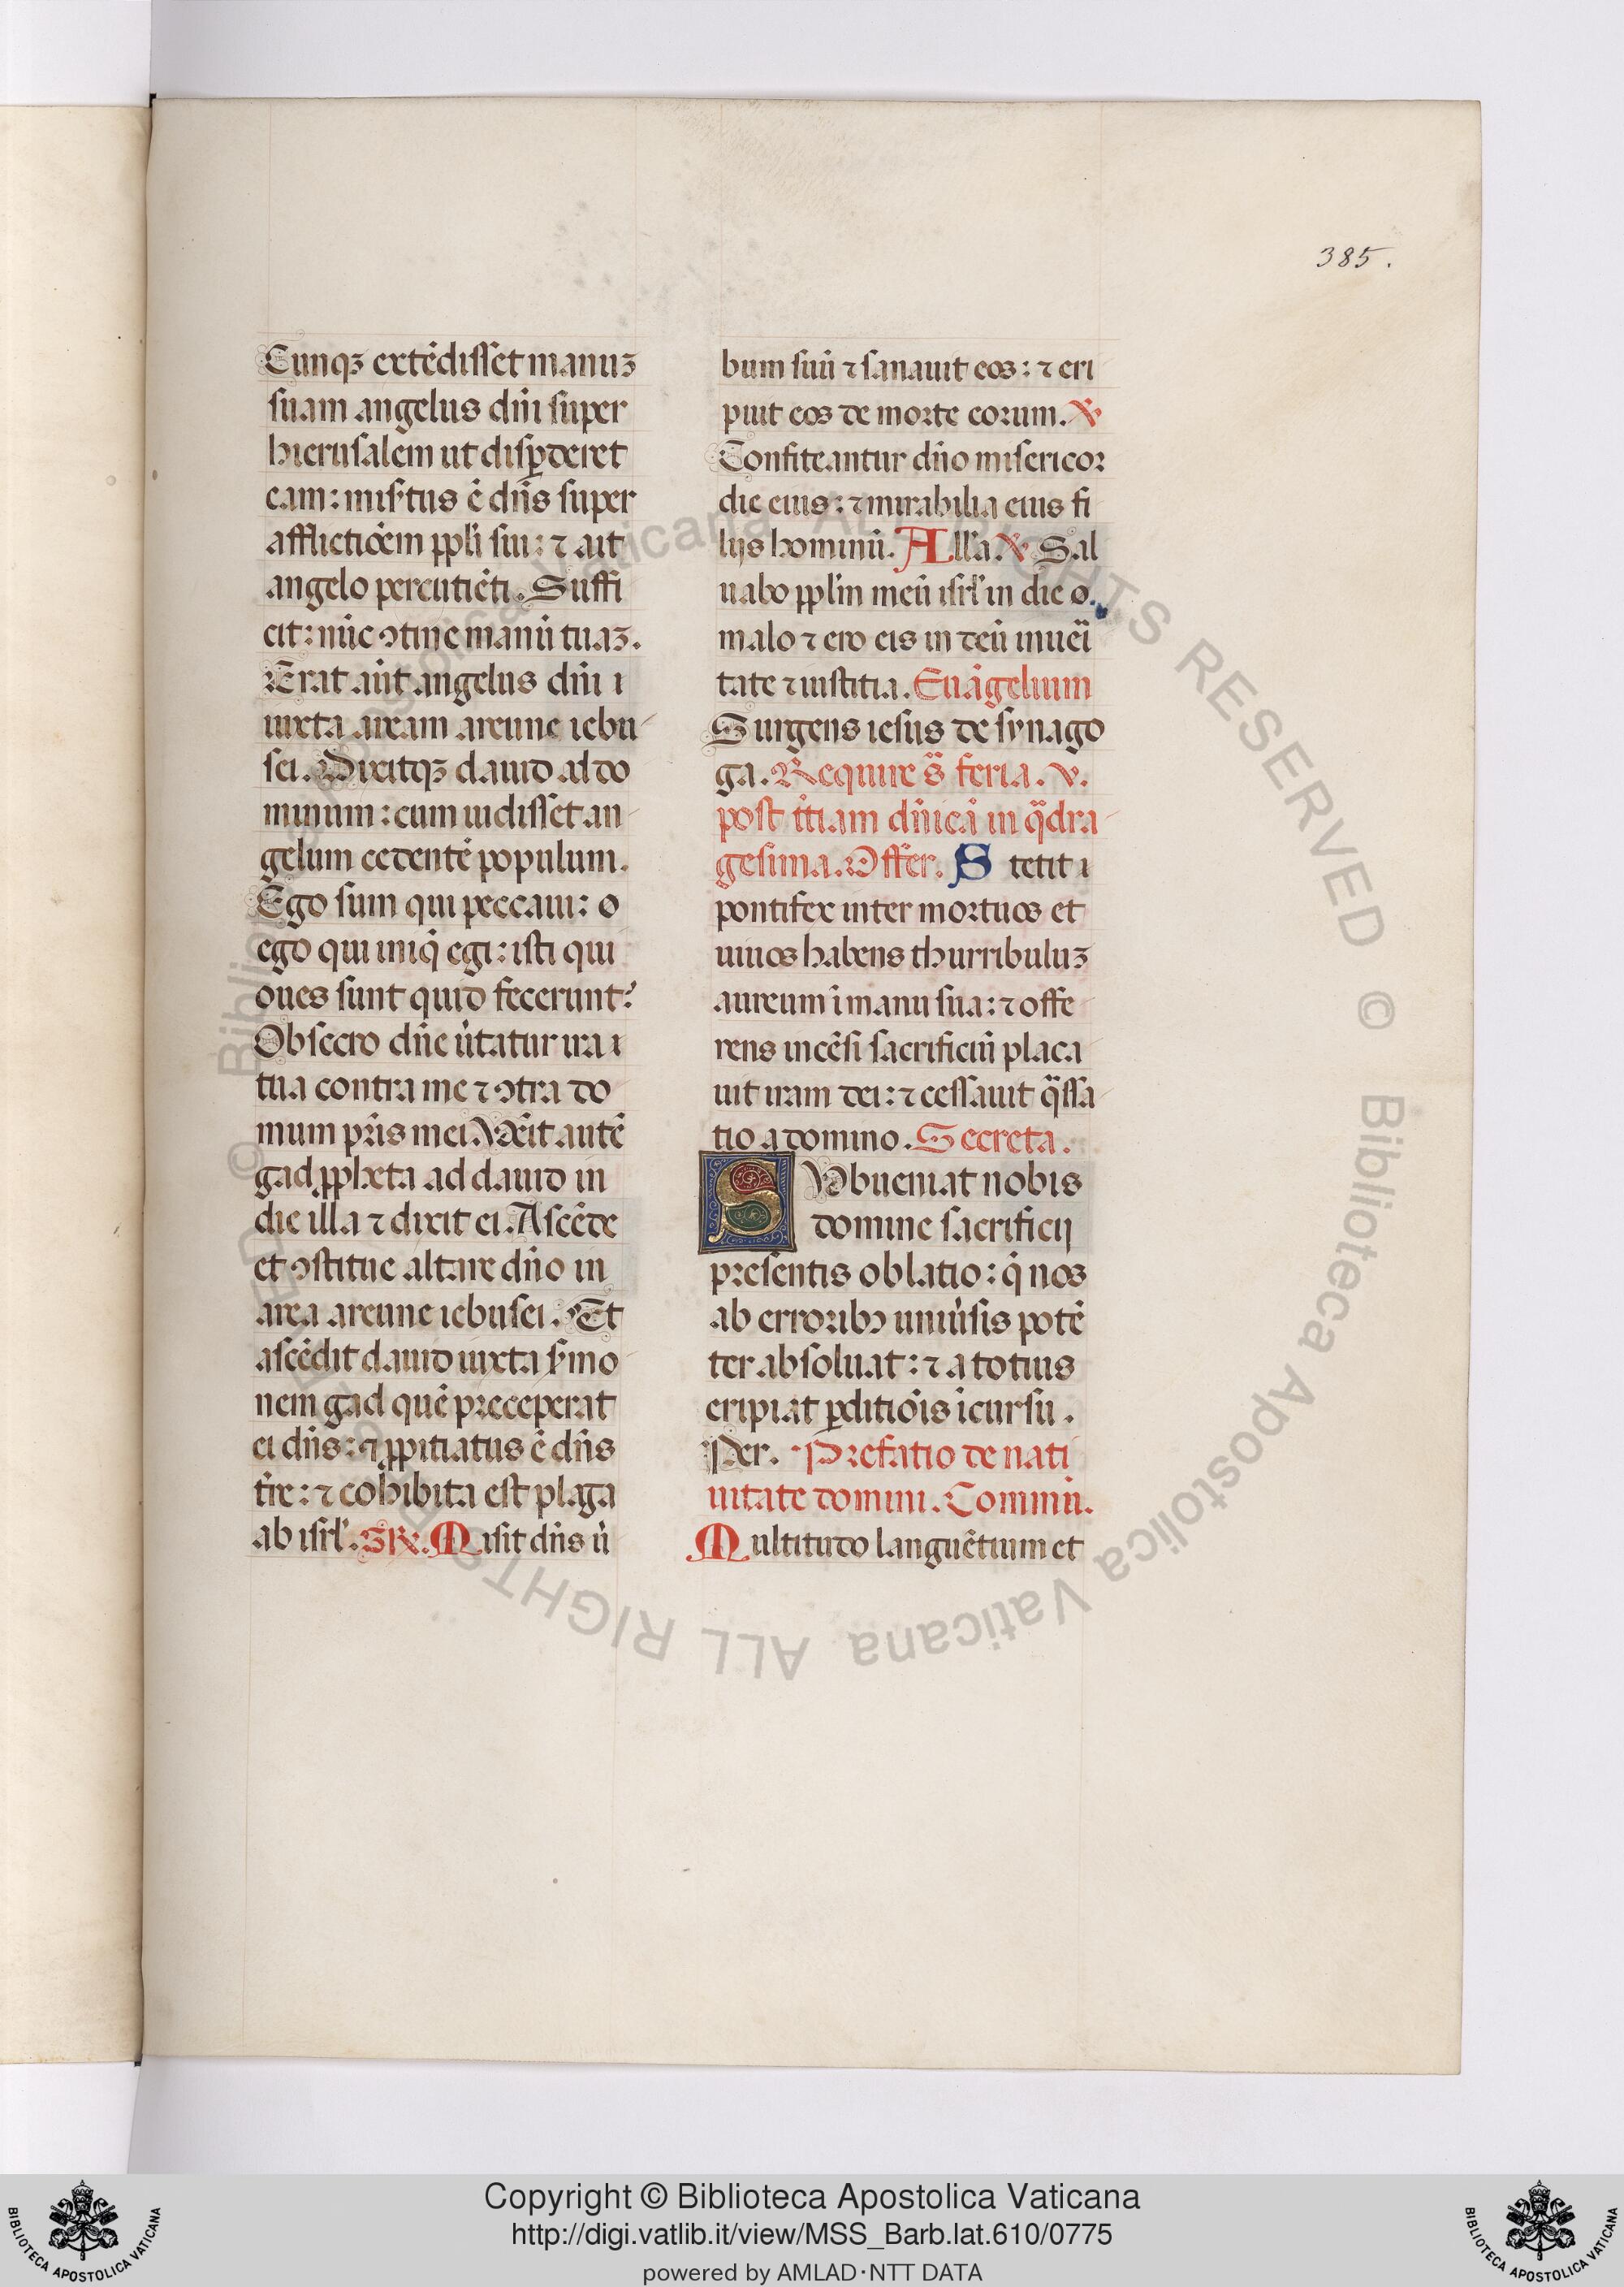 385.
Cunqꝫ extẽdisset manuꝫ
suam angelus dñi super
hierusalem ut disꝑderet
eam: misʼtus ẽ dñs super
afflictiõem ppl̃i sui: ⁊ ait
angelo percutiẽti. Suffi
cit: nũc ↄtine manũ tuaꝫ.
Erat aũt angelus dñi ı
iuxta aream areune iebu
sei. Dixitqꝫ dauid ad do
minum: cum uidisset an
gelum cedentẽ populum.
Ego sum qui peccaui: o
ego qui iniq̃ egi: isti qui
oues sunt quid fecerunt?
Obsecro dñe ũtatur ira ı
tua contra me ⁊ ↄtra do
mum pr̃is mei. Uẽit autẽ
gad ꝓpheta ad dauid in
die illa ⁊ dixit ei. Ascẽde
et ↄstitue altare dño in
area areune iebusei. Et
ascẽdit dauid iuxta s̃mo
nem gad quẽ preceperat
ei dñs: ⁊ ꝓpitiatus ẽ dñs
tr̃e: ⁊ cohibita est plaga
ab isrl̃. Gr̃. Misit dñs ũ
bum suũ ⁊ sanauit eos: ⁊ eri
puit eos de morte eorum. ℣
Confiteantur dño misericor
die eius: ⁊ mirabilia eius fi
lijs hominũ. All'a. ℣ Sal
uabo ppl̃m meũ isrl̃ in die o.
malo ⁊ ero eis in deũ in uei
tate ⁊ iustitia. Euãgelium
Surgens iesus de synago
ga. Require s̃ feria. v.
post t̃tiam dñicã in q̃dra
gesima. Offer. Stetit ı
pontifex inter mortuos et
uiuos habens thurribuluꝫ
aureum ĩ manu sua: ⁊ offe
rens incẽsi sacrificiũ placa
uit iram dei: ⁊ cessauit q̃ssa
tio a domino. Secreta.
SUbueniat nobis
domine sacrificij
presentis oblatio: q̃ nos
ab erroribꝰ uniũsis potẽ
ter absoluat: ⁊ a totius
eripiat ꝑditiõis ĩcursu.
Per. Prefatio de nati
uitate domini. Commũ.
Multitudo languẽtium et
© Biblioteca Apostolica Vaticana ALL RIGHTS RESERVED © Biblioteca Apostolica Vaticana ALL RIGHTS RESERVED
BIBLIOTECA APOSTOLICA VATICANA
Copyright © Biblioteca Apostolica Vaticana
http://digi.vatlib.it/view/MSS_Barb.lat.610/0775
powered by AMLAD·NTT DATA
BIBLIOTECA APOSTOLICA VATICANA